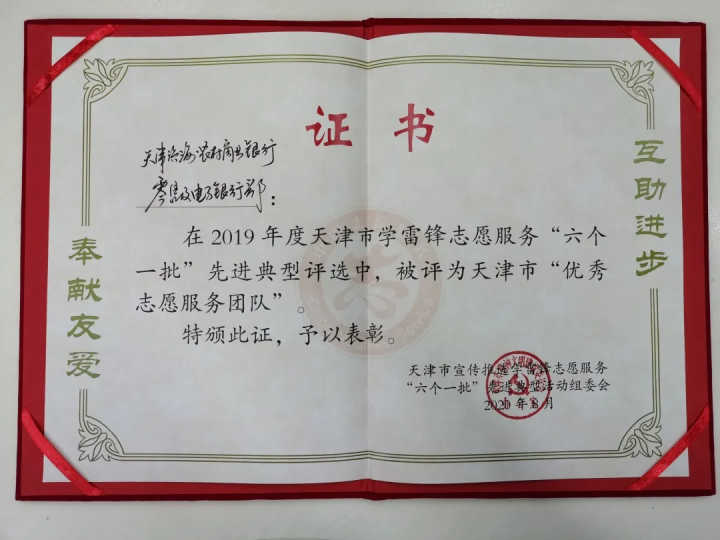 证书
天津滨海农村商业银行
零售及电子银行部：
在2019年度天津市学雷锋志愿服务“六个
一批”先进典型评选中，被评为天津市“优秀
志愿服务团队”。
特颁此证，予以表彰。
天津市宣传推选学雷锋志愿服务
“六个一批”先进典型活动组委会
2020年3月
奉献友爱
互助进步